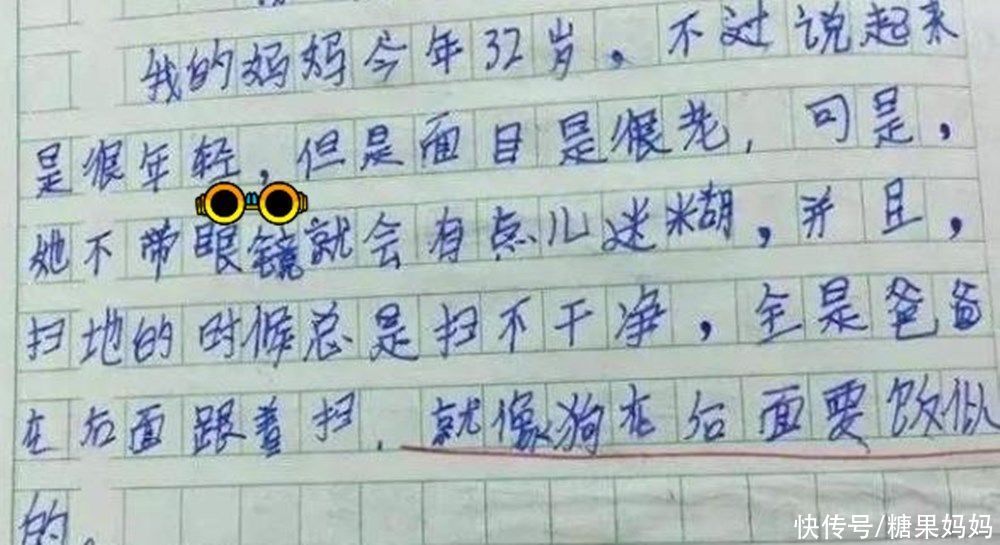 我的妈妈今年32岁，不过说起来
是很年轻，但是面目是很老，可是，
她不带眼镜就会有点儿迷糊，并且，
扫地的时候总是扫不干净，全是爸爸
在后面跟着扫．就像狗在后面要饭似
的。
快传号/糖果妈妈